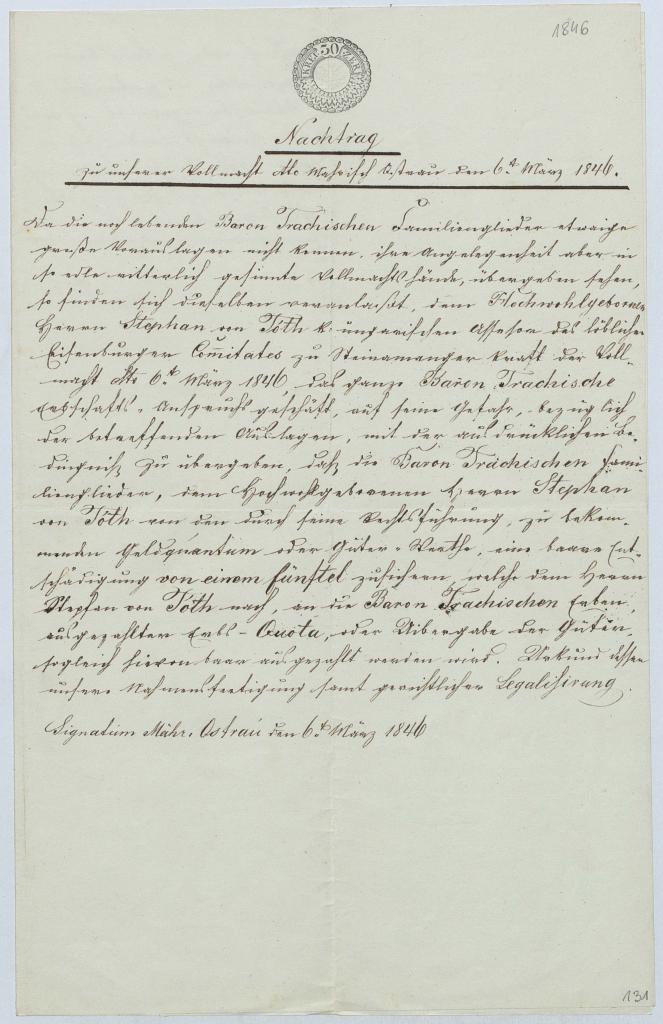 1846
30 KREUZER
Nachtrag
zu unserer Vollmacht dto Mährisch Ostrau den 6t März 1846.
Da die noch lebenden Baron Trachischen Familienglieder etwaige
große Vorauslagen nicht kennen, ihre Angelegenheit aber in
so edle ritterlich gesinnte Vollmachtshände, übergeben sehen,
so finden sich dieselben veranlaßt, dem Hochwohlgebornen
Herrn Stephan von Tóth k: ungarischen Assesor des löblichen
Eisenburger Comitates zu Steinamanger kraft der Voll-
macht dto 6t März 1846, das ganze Baron Trachische
Erbschafts-Anspruchsgeschäft, auf seine Gefahr, bezüglich
der betreffenden Auslagen, mit der ausdrücklichen Be-
dingniß zu übergeben, daß die Baron Trachischen Fami-
lienglieder, dem Hochwohlgeborenen Herrn Stephan
von Tóth von den durch seine Rechtsführung, zu bekom-
menden Geldquantum oder Güter-Werthe, eine baare Ent-
schädigung von einem fünftel zusichern, welche dem Herrn
Stephan von Tóth nach, an die Baron Trachischen Erben,
ausgezahlten Erbs-Quota, oder Uibergabe der Güter,
sogleich hievon baar ausgezahlt werden wird. Urkund dessen
unsere Nahmensfertigung samt gerichtlicher Legalisirung.
Signatum Mähr. Ostrau den 6t März 1846
131